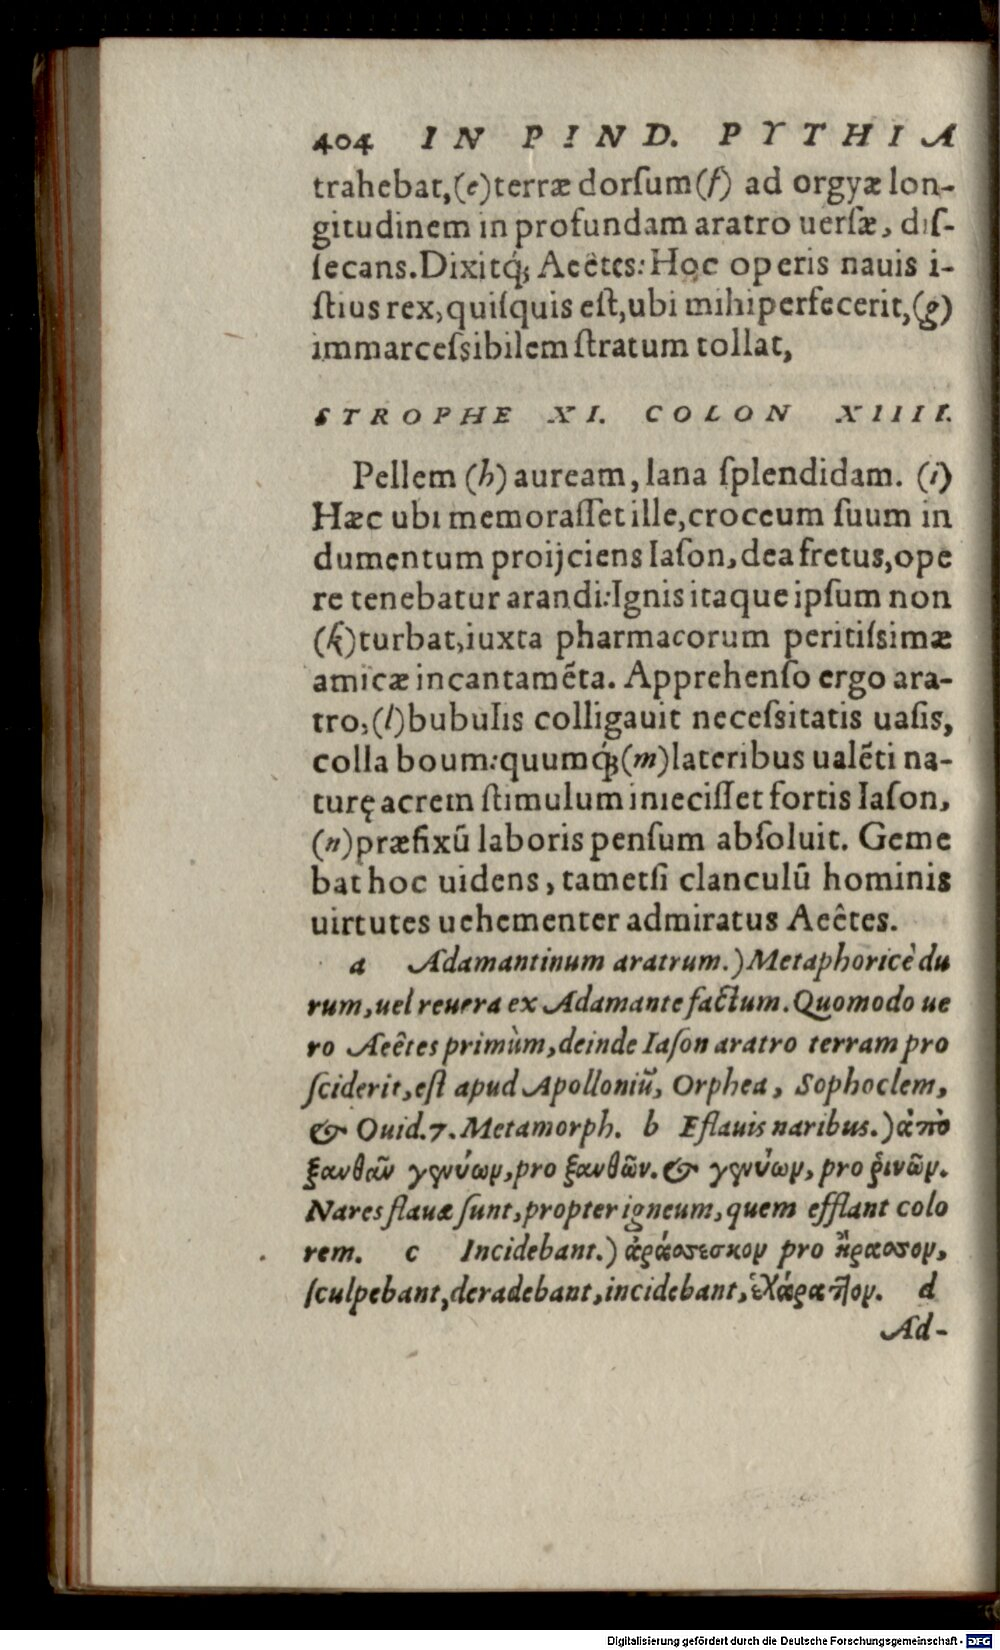 404 IN PIND. PYTHIA
trahebat,(e)terræ dorſum(f) ad orgyæ lon-
gitudinem in profundam aratro uerſæ, diſ-
ſecans. Dixitq́; Aeêtes: Hoc operis nauis i-
ſtius rex, quiſquis eſt, ubi mihi perfecerit,(g)
immarceſsibilem ſtratum tollat,
STROPHE XI. COLON XIIII.
Pellem (h) auream, lana ſplendidam. (i)
Hæc ubi memoraſſet ille, croceum ſuum in
dumentum proijciens Iaſon, dea fretus, ope
re tenebatur arandi: Ignis itaque ipſum non
(k)turbat, iuxta pharmacorum peritiſsimæ
amicæ incantamẽta. Apprehenſo ergo ara-
tro,(l)bubulis colligauit neceſsitatis uaſis,
colla boum: quumq́;(m)lateribus ualẽti na-
turę acrem ſtimulum inieciſſet fortis Iaſon,
(n)præfixũ laboris penſum abſoluit. Geme
bat hoc uidens, tametſi clanculũ hominis
uirtutes uehementer admiratus Aeêtes.
a Adamantinum aratrum.) Metaphoricè du
rum, uel reuera ex Adamante factum. Quomodo ue
ro Aeêtes primùm, deinde Iaſon aratro terram pro
ſciderit, eſt apud Apolloniũ, Orphea, Sophoclem,
& Ouid. 7. Metamorph. b E flauis naribus.) ἀπὸ
ξανθᾶν γενύων, pro ξανθῶν. & γενύων, pro ῥινῶν.
Nares flauæ ſunt, propter igneum, quem efflant colo
rem. c Incidebant.) ἀράσσεσκον pro ἤρασσον,
ſculpebant, deradebant, incidebant, ἐχάραττον. d
Ad-
Digitalisierung gefördert durch die Deutsche Forschungsgemeinschaft - DFG